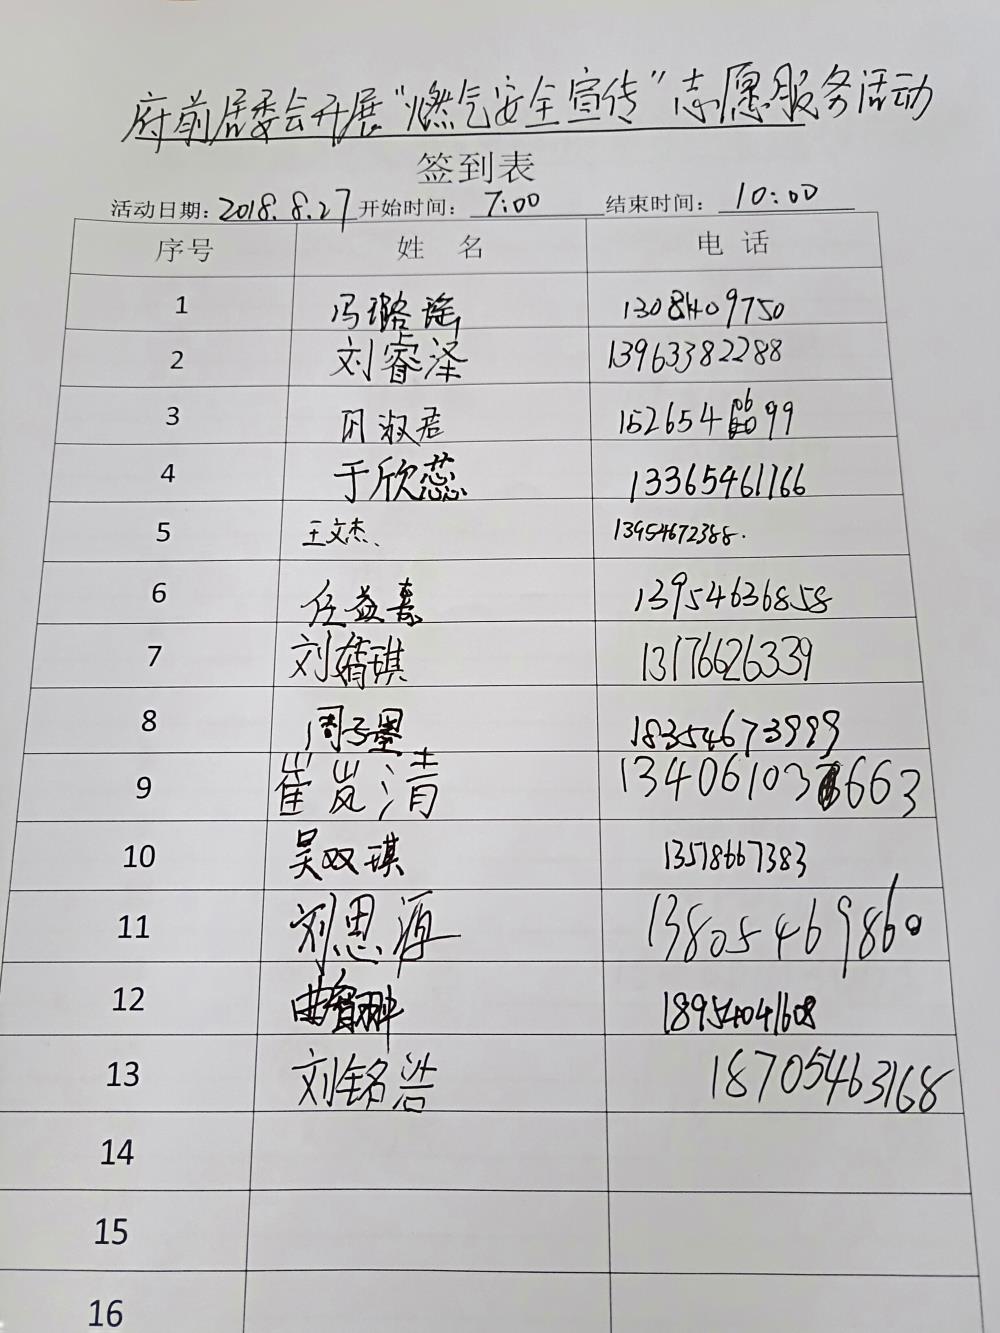 府前居委会开展“燃气安全宣传”志愿服务活动
签到表
活动日期：2018.8.27 开始时间：7:00 结束时间：10:00
序号 姓名 电话
1 冯璐瑶
2 刘睿泽 13963382288
3 淑君
4 于欣蕊 13365461166
5 王文杰、 13954672388.
6 任益 13954636858
7 刘婧琪 13176626339
8 周子墨
9 崔岚清
10 吴双琪 13518667383
11 刘思源
12 曲 18954041608
13 刘铭浩 18705463168
14
15
16